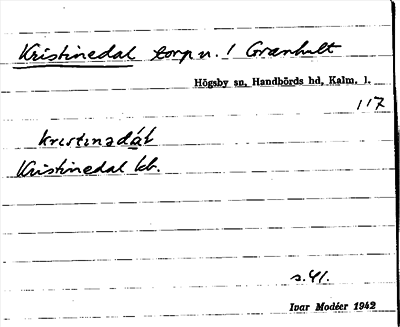 Kristinedal torp u. / Granhult
Högsby sn, Handbörds hd, Kalm. l.
117
kristinadát
Kristinedal kb.
s. 41.
Ivar Modéer 1942